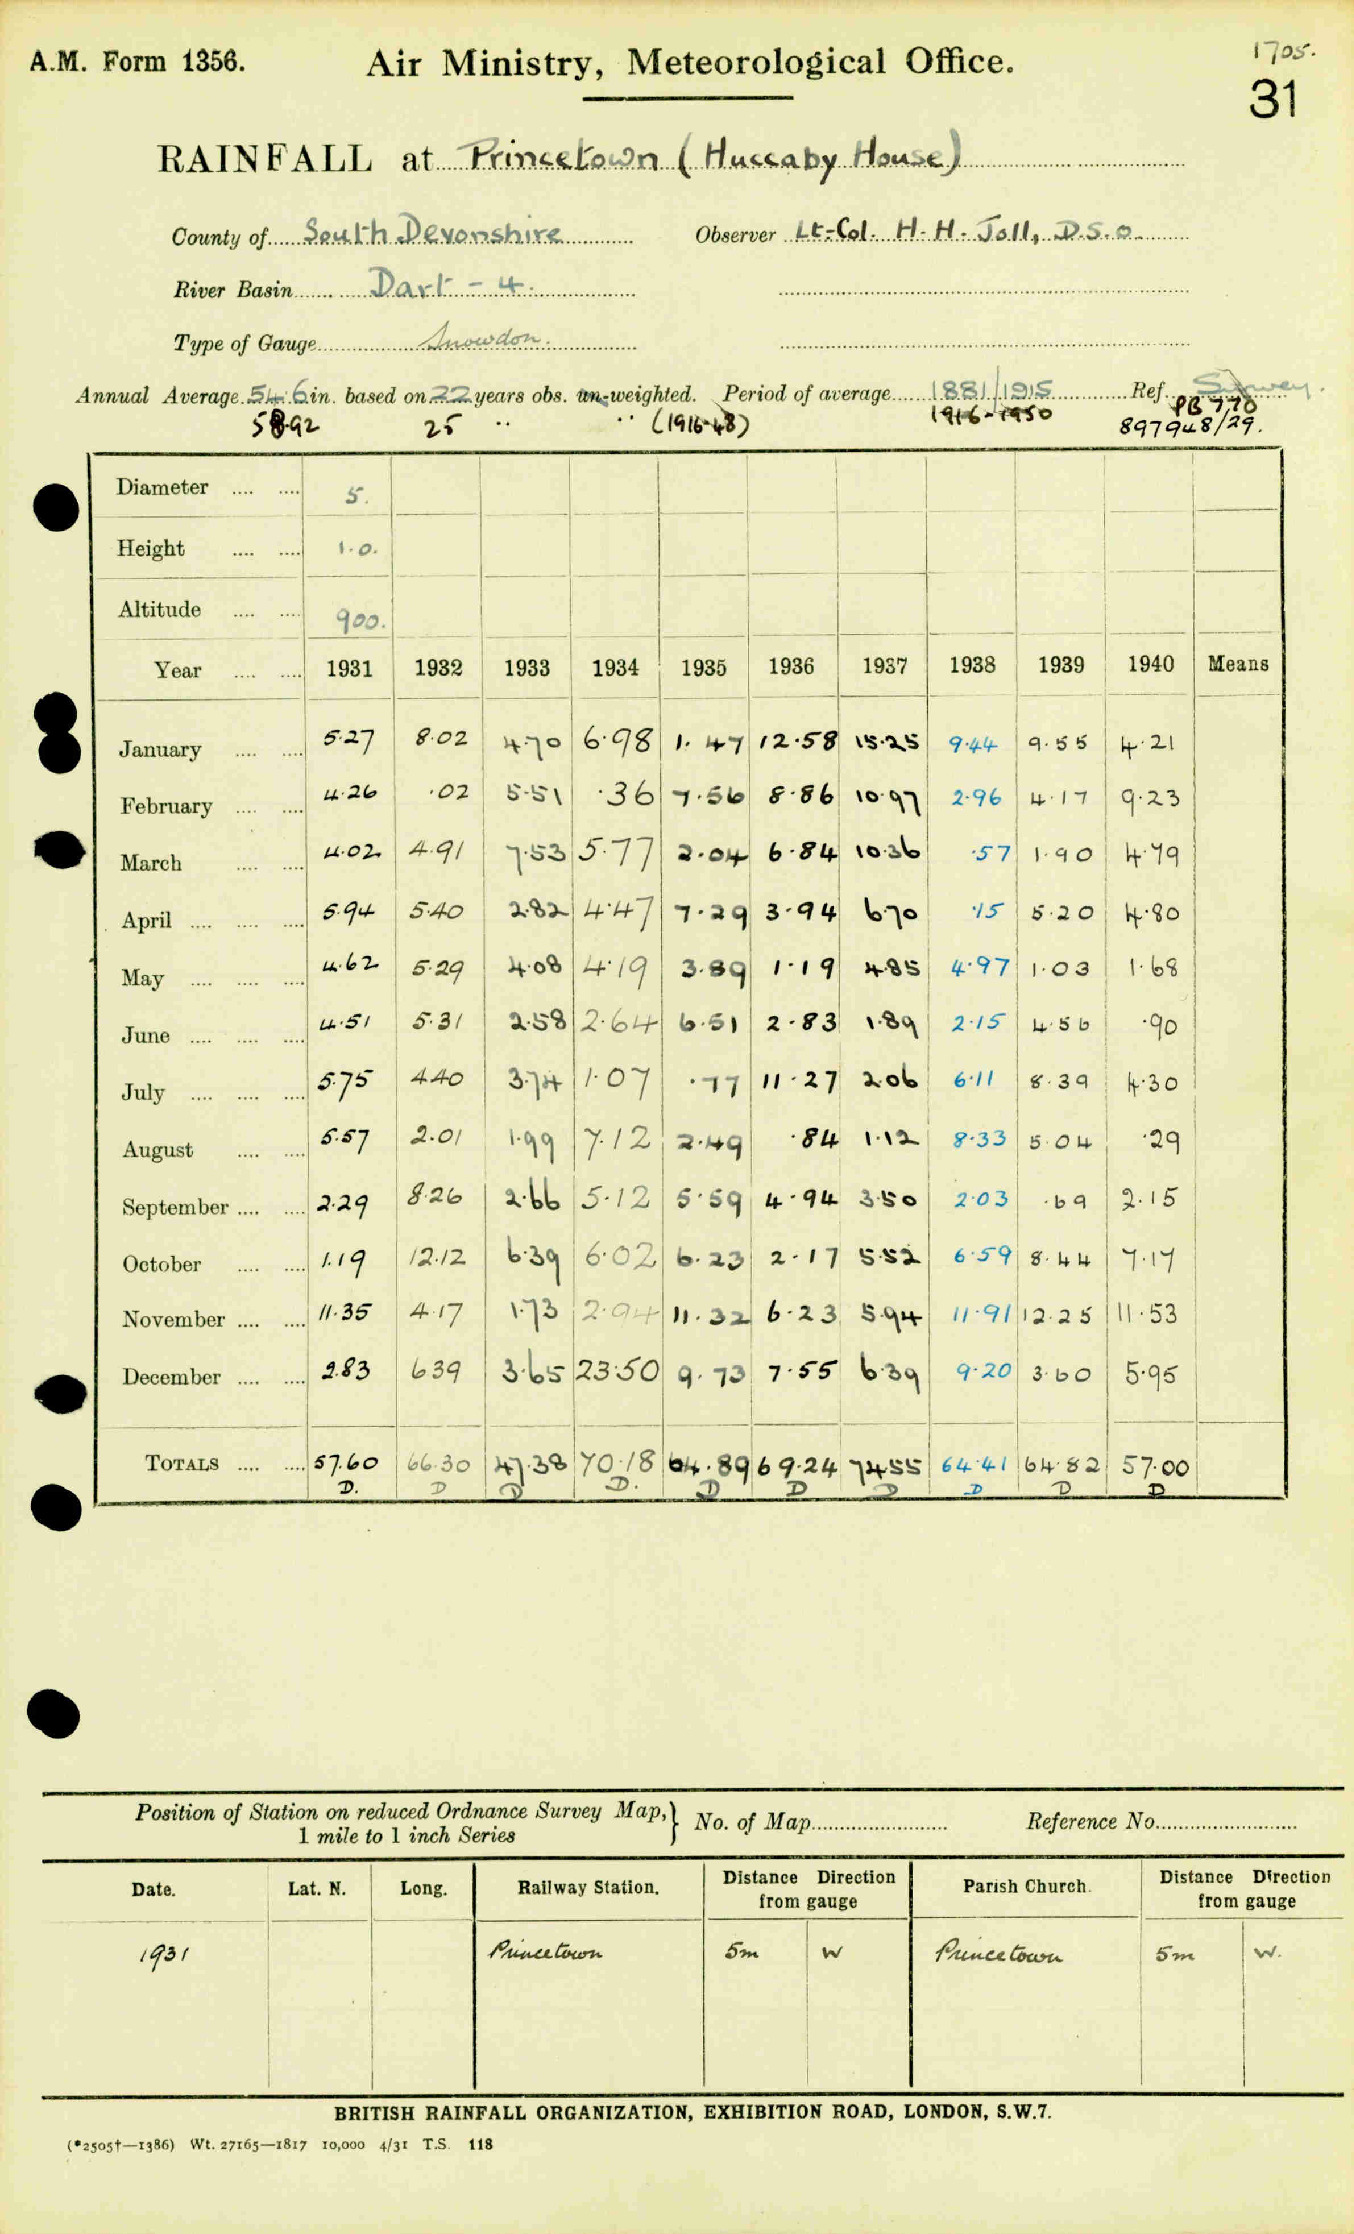 A.M. Form 1356. Air Ministry, Meteorological Office. 1705.
31
RAINFALL at Princetown (Huccaby House)
County of South Devonshire Observer Lt-Col. H. H. Joll, D.S.O.
River Basin Dart - 4.
Type of Gauge Snowdon.
Annual Average 54.6 in. based on 22 years obs. un-weighted. Period of average 1881/1915 Ref. Survey.
25 " " (1916-48) 1916-1950 PB 770
897948/29.
Diameter .... .... 5.
Height .... .... 1.0.
Altitude .... .... 900.
Year .... .... 1931 1932 1933 1934 1935 1936 1937 1938 1939 1940 Means
January .... .... 5.27 8.02 4.70 6.98 1.47 12.58 15.25 9.44 9.55 4.21
February .... .... 4.26 .02 5.51 .36 7.56 8.86 10.97 2.96 4.17 9.23
March .... .... 4.02 4.91 7.53 5.77 2.04 6.84 10.36 .57 1.90 4.79
April .... .... .... 5.94 5.40 2.82 4.47 7.29 3.94 6.70 .15 5.20 4.80
May .... .... .... 4.62 5.29 4.08 4.19 3.89 1.19 4.85 4.97 1.03 1.68
June .... .... .... 4.51 5.31 2.58 2.64 6.51 2.83 1.89 2.15 4.56 .90
July .... .... .... 5.75 4.40 3.74 1.07 .77 11.27 2.06 6.11 8.39 4.30
August .... .... 5.57 2.01 1.99 7.12 2.49 .84 1.12 8.33 5.04 .29
September .... .... 2.29 8.26 2.66 5.12 5.59 4.94 3.50 2.03 .69 2.15
October .... .... 1.19 12.12 6.39 6.02 6.23 2.17 5.52 6.59 8.44 7.17
November .... .... 11.35 4.17 1.73 2.94 11.32 6.23 5.94 11.91 12.25 11.53
December .... .... 2.83 6.39 3.65 23.50 9.73 7.55 6.39 9.20 3.60 5.95
TOTALS .... .... 57.60 66.30 47.38 70.18 64.89 69.24 74.55 64.41 64.82 57.00
D. D D D. D D D D D D
Position of Station on reduced Ordnance Survey Map,} No. of Map Reference No.
1 mile to 1 inch Series
Date. Lat. N. Long. Railway Station. Distance Direction from gauge Parish Church. Distance Direction from gauge
1931 Princetown 5m W Princetown 5m W.
BRITISH RAINFALL ORGANIZATION, EXHIBITION ROAD, LONDON, S.W.7.
(*2505†—1386) Wt. 27165—1817 10,000 4/31 T.S. 118